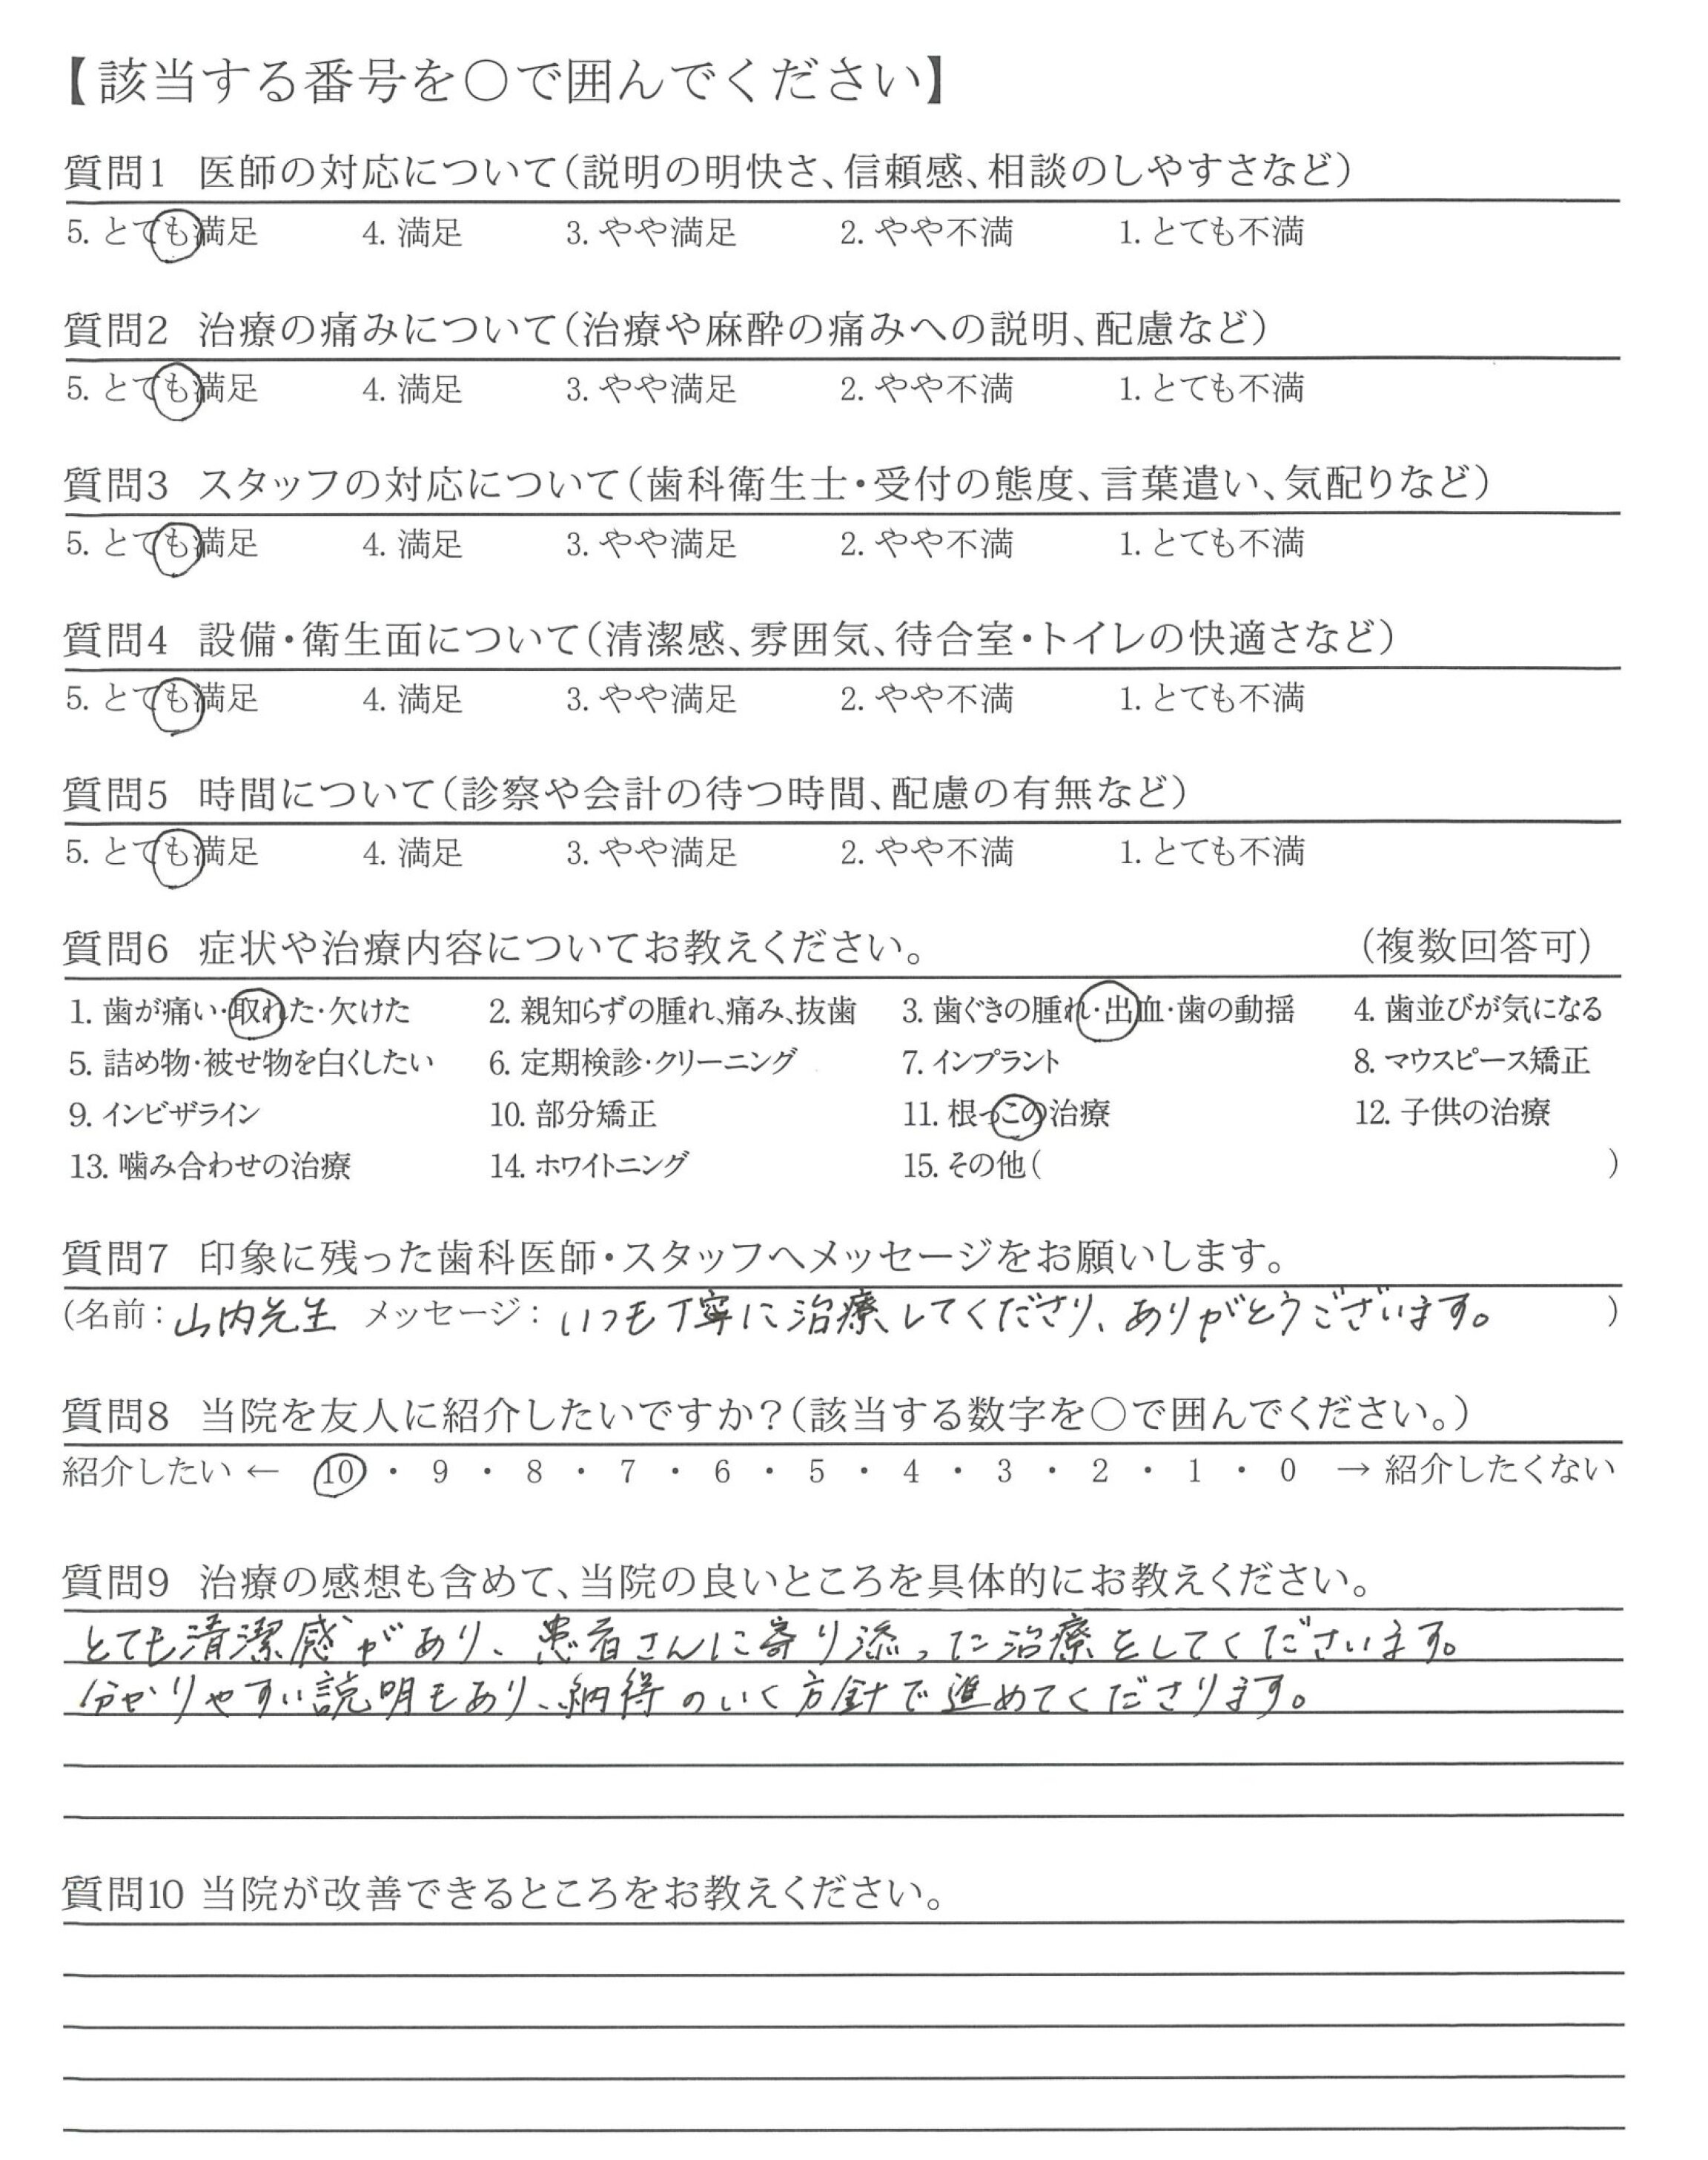 【該当する番号を○で囲んでください】
質問1 医師の対応について(説明の明快さ、信頼感、相談のしやすさなど)
5. とても満足 4. 満足 3. やや満足 2. やや不満 1. とても不満
質問2 治療の痛みについて(治療や麻酔の痛みへの説明、配慮など)
5. とても満足 4. 満足 3. やや満足 2. やや不満 1. とても不満
質問3 スタッフの対応について(歯科衛生士・受付の態度、言葉遣い、気配りなど)
5. とても満足 4. 満足 3. やや満足 2. やや不満 1. とても不満
質問4 設備・衛生面について(清潔感、雰囲気、待合室・トイレの快適さなど)
5. とても満足 4. 満足 3. やや満足 2. やや不満 1. とても不満
質問5 時間について(診察や会計の待つ時間、配慮の有無など)
5. とても満足 4. 満足 3. やや満足 2. やや不満 1. とても不満
質問6 症状や治療内容についてお教えください。 (複数回答可)
1. 歯が痛い・取れた・欠けた 2. 親知らずの腫れ、痛み、抜歯 3. 歯ぐきの腫れ・出血・歯の動揺 4. 歯並びが気になる
5. 詰め物・被せ物を白くしたい 6. 定期検診・クリーニング 7. インプラント 8. マウスピース矯正
9. インビザライン 10. 部分矯正 11. 根っこの治療 12. 子供の治療
13. 噛み合わせの治療 14. ホワイトニング 15. その他( )
質問7 印象に残った歯科医師・スタッフへメッセージをお願いします。
(名前:山内先生 メッセージ:いつも丁寧に治療してくださり、ありがとうございます。 )
質問8 当院を友人に紹介したいですか?(該当する数字を○で囲んでください。)
紹介したい ← 10 ・ 9 ・ 8 ・ 7 ・ 6 ・ 5 ・ 4 ・ 3 ・ 2 ・ 1 ・ 0 → 紹介したくない
質問9 治療の感想も含めて、当院の良いところを具体的にお教えください。
とても清潔感があり、患者さんに寄り添った治療をしてくださいます。
分かりやすい説明もあり、納得のいく方針で進めてくださります。
質問10 当院が改善できるところをお教えください。